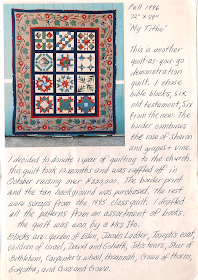 Fall 1996
72" x 88"
"My Tithe"
This is another
quilt-as-you-go
demonstration
quilt. I chose
bible blocks, six
old testament, six
from the new. The
border combines
the rose of Sharon
and grapes + vine
I decided to donate 1 year of quilting to the church.
This quilt took 10 months and was raffled off in
October raising over $2200.00. The border print
and the tan background was purchased. The rest
were scraps from the 1995 class quilt. I drafted
all the patterns from an assortment of books.
The quilt was won by a Mrs Ito.
Blocks are: garden of Eden, Jacobs Ladder, Joseph's coat,
children of Israel, David and Goliath, Jobs tears, Star of
Bethlehem, Carpenter's wheel, Hosannah, Crown of thorns,
Golgotha, and Cross and Crown.